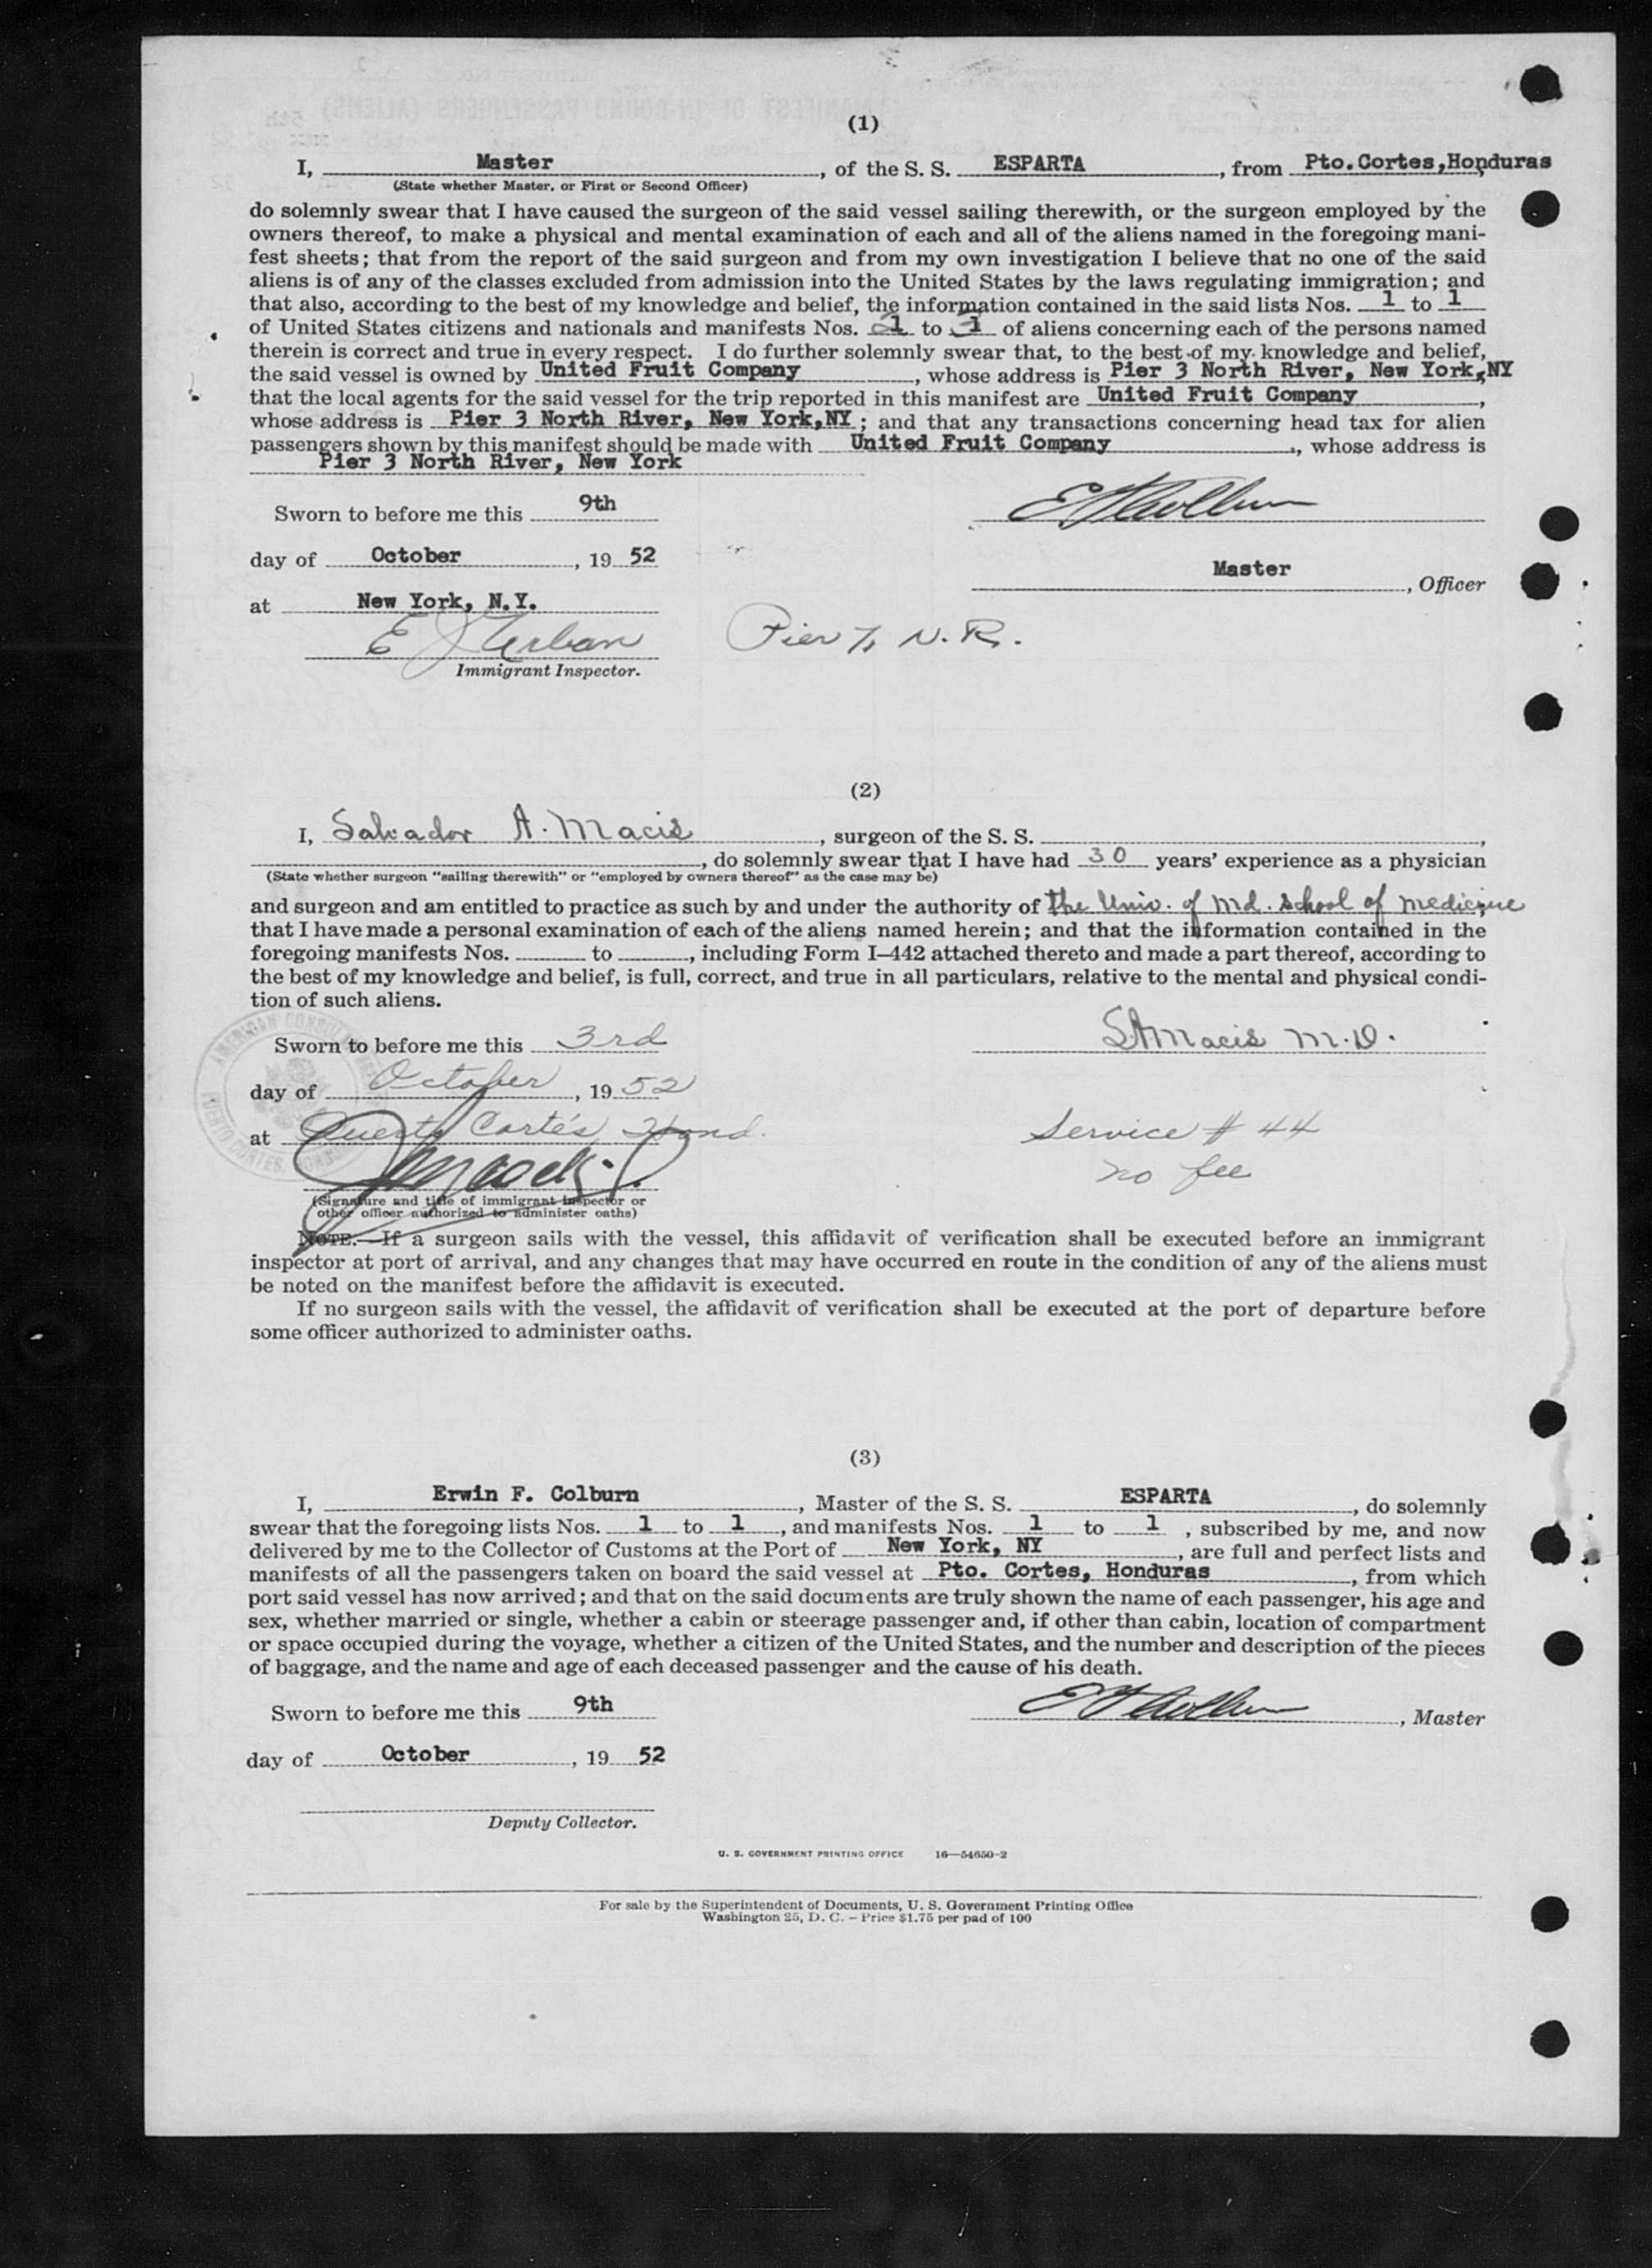 (1)
I, Master, of the S. S. ESPARTA, from Pto.Cortes,Honduras,
(State whether Master, or First or Second Officer)
do solemnly swear that I have caused the surgeon of the said vessel sailing therewith, or the surgeon employed by the
owners thereof, to make a physical and mental examination of each and all of the aliens named in the foregoing mani-
fest sheets; that from the report of the said surgeon and from my own investigation I believe that no one of the said
aliens is of any of the classes excluded from admission into the United States by the laws regulating immigration; and
that also, according to the best of my knowledge and belief, the information contained in the said lists Nos. 1 to 1
of United States citizens and nationals and manifests Nos. 1 to 1 of aliens concerning each of the persons named
therein is correct and true in every respect. I do further solemnly swear that, to the best of my knowledge and belief,
the said vessel is owned by United Fruit Company, whose address is Pier 3 North River, New York,NY
that the local agents for the said vessel for the trip reported in this manifest are United Fruit Company,
whose address is Pier 3 North River, New York,NY; and that any transactions concerning head tax for alien
passengers shown by this manifest should be made with United Fruit Company, whose address is
Pier 3 North River, New York
Sworn to before me this 9th
day of October, 19 52
Master, Officer
at New York, N.Y.
E J Urban Pier 7, N. R.
Immigrant Inspector.
(2)
I, Salvador A. Macis, surgeon of the S. S. ,
, do solemnly swear that I have had 30 years' experience as a physician
(State whether surgeon "sailing therewith" or "employed by owners thereof" as the case may be)
and surgeon and am entitled to practice as such by and under the authority of the Univ. of Md. School of Medicine,
that I have made a personal examination of each of the aliens named herein; and that the information contained in the
foregoing manifests Nos. to , including Form I-442 attached thereto and made a part thereof, according to
the best of my knowledge and belief, is full, correct, and true in all particulars, relative to the mental and physical condi-
tion of such aliens.
Sworn to before me this 3rd SAMacis M.D.
day of October, 19 52
at Puerto Cortés, Hond. Service # 44
no fee
(Signature and title of immigrant inspector or
other officer authorized to administer oaths)
NOTE.—If a surgeon sails with the vessel, this affidavit of verification shall be executed before an immigrant
inspector at port of arrival, and any changes that may have occurred en route in the condition of any of the aliens must
be noted on the manifest before the affidavit is executed.
If no surgeon sails with the vessel, the affidavit of verification shall be executed at the port of departure before
some officer authorized to administer oaths.
(3)
I, Erwin F. Colburn, Master of the S. S. ESPARTA, do solemnly
swear that the foregoing lists Nos. 1 to 1, and manifests Nos. 1 to 1, subscribed by me, and now
delivered by me to the Collector of Customs at the Port of New York, NY, are full and perfect lists and
manifests of all the passengers taken on board the said vessel at Pto. Cortes, Honduras, from which
port said vessel has now arrived; and that on the said documents are truly shown the name of each passenger, his age and
sex, whether married or single, whether a cabin or steerage passenger and, if other than cabin, location of compartment
or space occupied during the voyage, whether a citizen of the United States, and the number and description of the pieces
of baggage, and the name and age of each deceased passenger and the cause of his death.
Sworn to before me this 9th
EF Colburn, Master
day of October, 19 52
Deputy Collector.
U. S. GOVERNMENT PRINTING OFFICE 16—54650-2
For sale by the Superintendent of Documents, U. S. Government Printing Office
Washington 25, D. C. - Price $1.75 per pad of 100